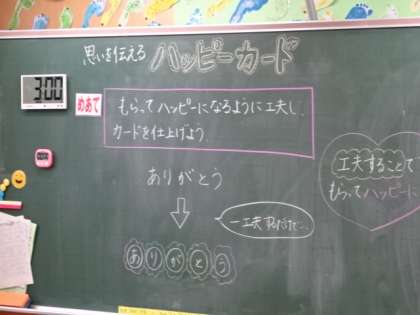 思いを伝える ハッピーカード
3:00
めあて
もらってハッピーになるように工夫し、
カードを仕上げよう。
ありがとう
一工夫するだけで…
ありがとう
工夫することで
もらってハッピーに